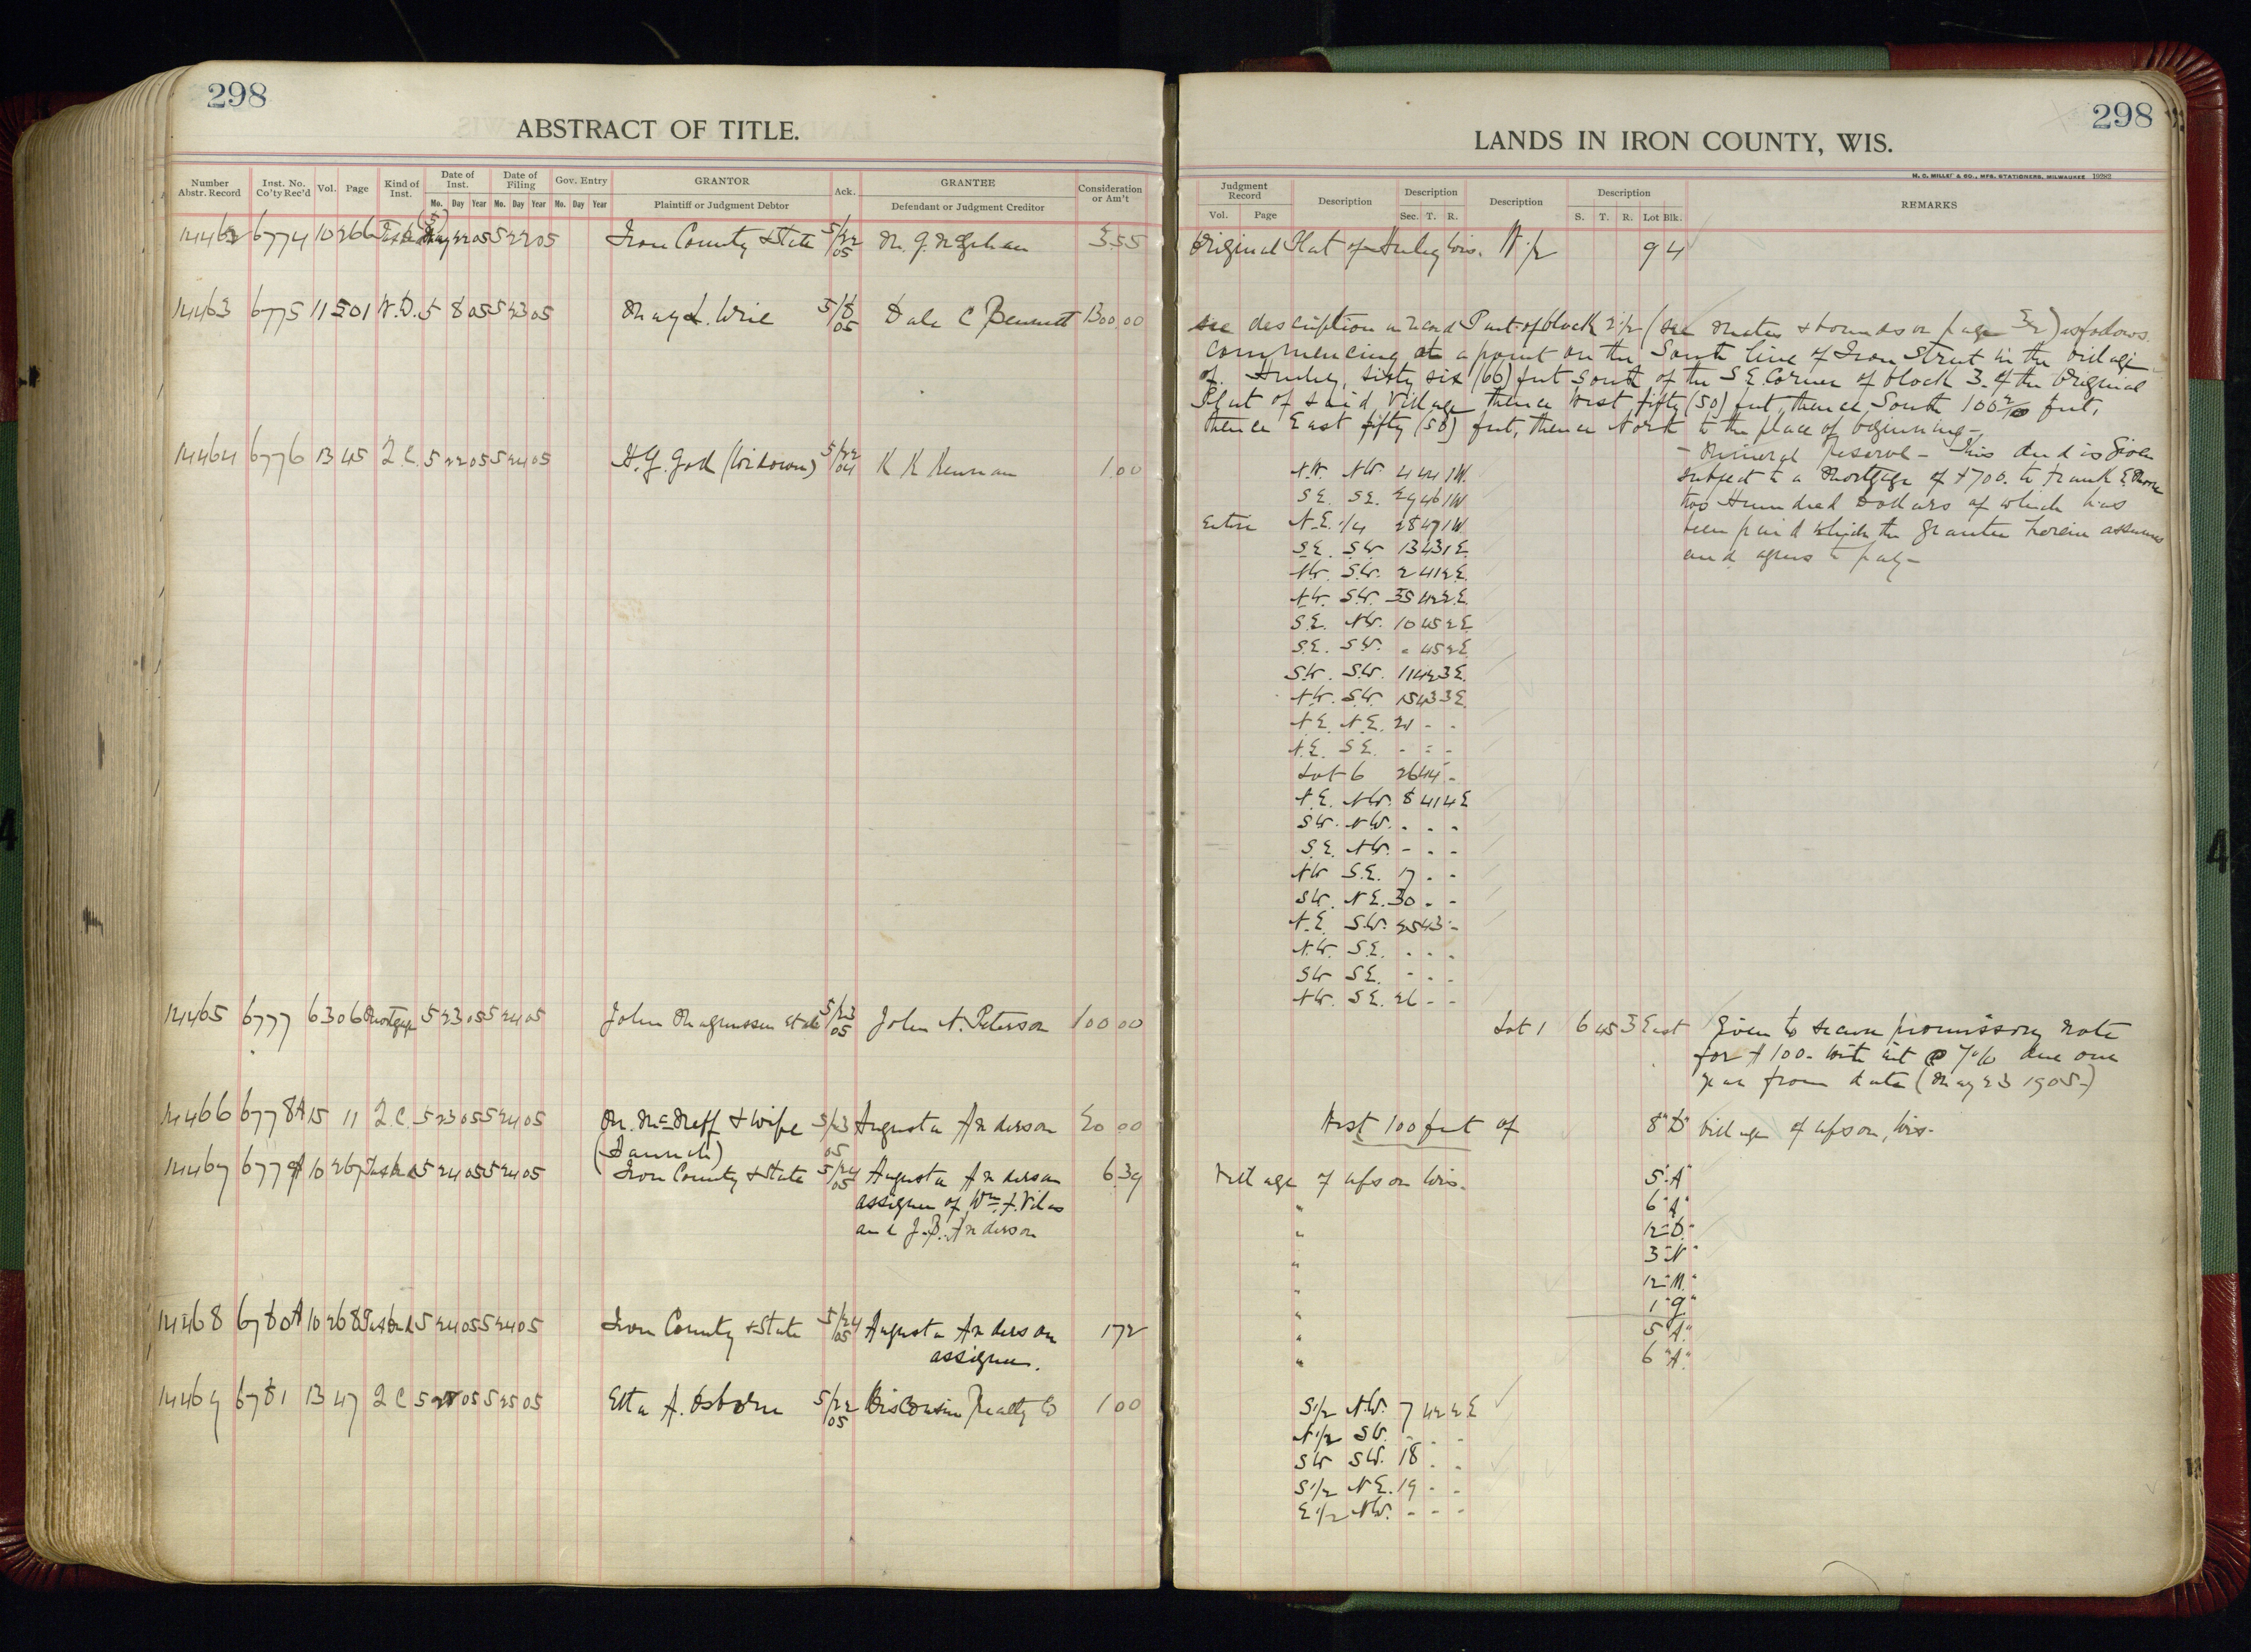 298
ABSTRACT OF TITLE.
Number Abstr. Record | Inst. No. Co'ty Rec'd | Vol. | Page | Kind of Inst. | Date of Inst. Mo. Day Year | Date of Filing Mo. Day Year | Gov. Entry Mo. Day Year | GRANTOR Plaintiff or Judgment Debtor | Ack. | GRANTEE Defendant or Judgment Creditor | Consideration or Am't
14462 6774 10 266 Tax Deed May (5) 22 05 5 22 05 Iron County & State 5/22 05 3.55
14463 6775 11 501 W.D. 5 8 05 5 23 05 May L. 5/8 05 Dale C Bennett 1300.00
14464 6776 13 45 Q.C. 5 22 05 5 24 05 H.G. (Widower) 5/22 04 K K Kennan 1.00
14465 6777 6 306 Mortgage 5 23 05 5 24 05 John Magnussen et al 5/23 05 John N. Peterson 100 00
14466 6778A 15 11 Q.C. 5 23 05 5 24 05 M. McNeff & wife 5/23 05 Augusta Anderson 20 00
(Hannah)
14467 6779A 10 267 Tax Deed 5 24 05 5 24 05 Iron County & State 5/24 05 Augusta Anderson 6 39
assignee of Wm. F. Vilas
and J.B. Anderson
14468 6780A 10 268 Tax Deed 5 24 05 5 24 05 Iron County & State 5/24 05 Augusta Anderson 1 72
assignee.
14469 6781 13 47 Q C 5 05 5 25 05 Etta A. Osborne 5/22 05 Wisconsin Realty Co 1 00
298
LANDS IN IRON COUNTY, WIS.
H. C. MILLER CO., MFG. STATIONERS, MILWAUKEE 19282
Judgment Record Vol. Page | Description | Description Sec. T. R. | Description | Description S. T. R. Lot Blk. | REMARKS
Original Plat of Hurley Wis. N 1/2 9 4
see description in Part of block 2 1/2 (see metes & bounds on page) as follows.
Commencing at a point on the South line of Iron Street in the village
of Hurley, sixty six (66) feet South of the S E Corner of block 3. of the Original
Plat of said Village thence West fifty (50) feet, thence South feet,
thence East fifty (50) feet, thence North to the place of beginning-
- Mineral Reserve - This deed is given
subject to a Mortgage of $700. to Frank E.
two Hundred Dollars of which has
been paid which the grantee herein assumes
and agrees to pay-
N.W. N.W. 4 44 1W.
S.E. S.E. 29 46 1W
Entire N.E. 1/4 28 47 1W
S.E. S.W 13 43 1E.
N.W. S.W. 2 41 2E.
N.W. S.W. 35 42 2E.
S.E. N.W. 10 45 2E
S.E. S.W. " 45 2E
S.W. S.W. 11 42 3E.
N.W. S.W. 15 43 3E
N.E. N.E. 21 - -
N.E. S.E. - - -
Lot 6 26 44 -
N.E. N.W. 8 41 4E
S.W. N.W. - - -
S.E. N.W. - - -
N.W S.E. 17 - -
S.W. N.E. 30 - -
N.E. S.W. 25 43 -
N.W. S.E. - - -
S.W S.E. - - -
N.W. S.E. 26 - -
Lot 1 6 45 3 East Given to secure promissory note
for $100. with int @ 7% due one
year from date (May 23 1905-)
West 100 feet of 8 "D" Village of Upson, Wis-
Village of Upson Wis. 5 "A"
" 6 "A"
" 12 "D"
" 3 "N"
" 12 "M"
" 1 "Q"
" 5 "A"
" 6 "A"
S 1/2 N.W. 7 42 2 E
N 1/2 S.W. - - -
S W S W. 18 - -
S 1/2 N E. 19 - -
E 1/2 N.W. - - -